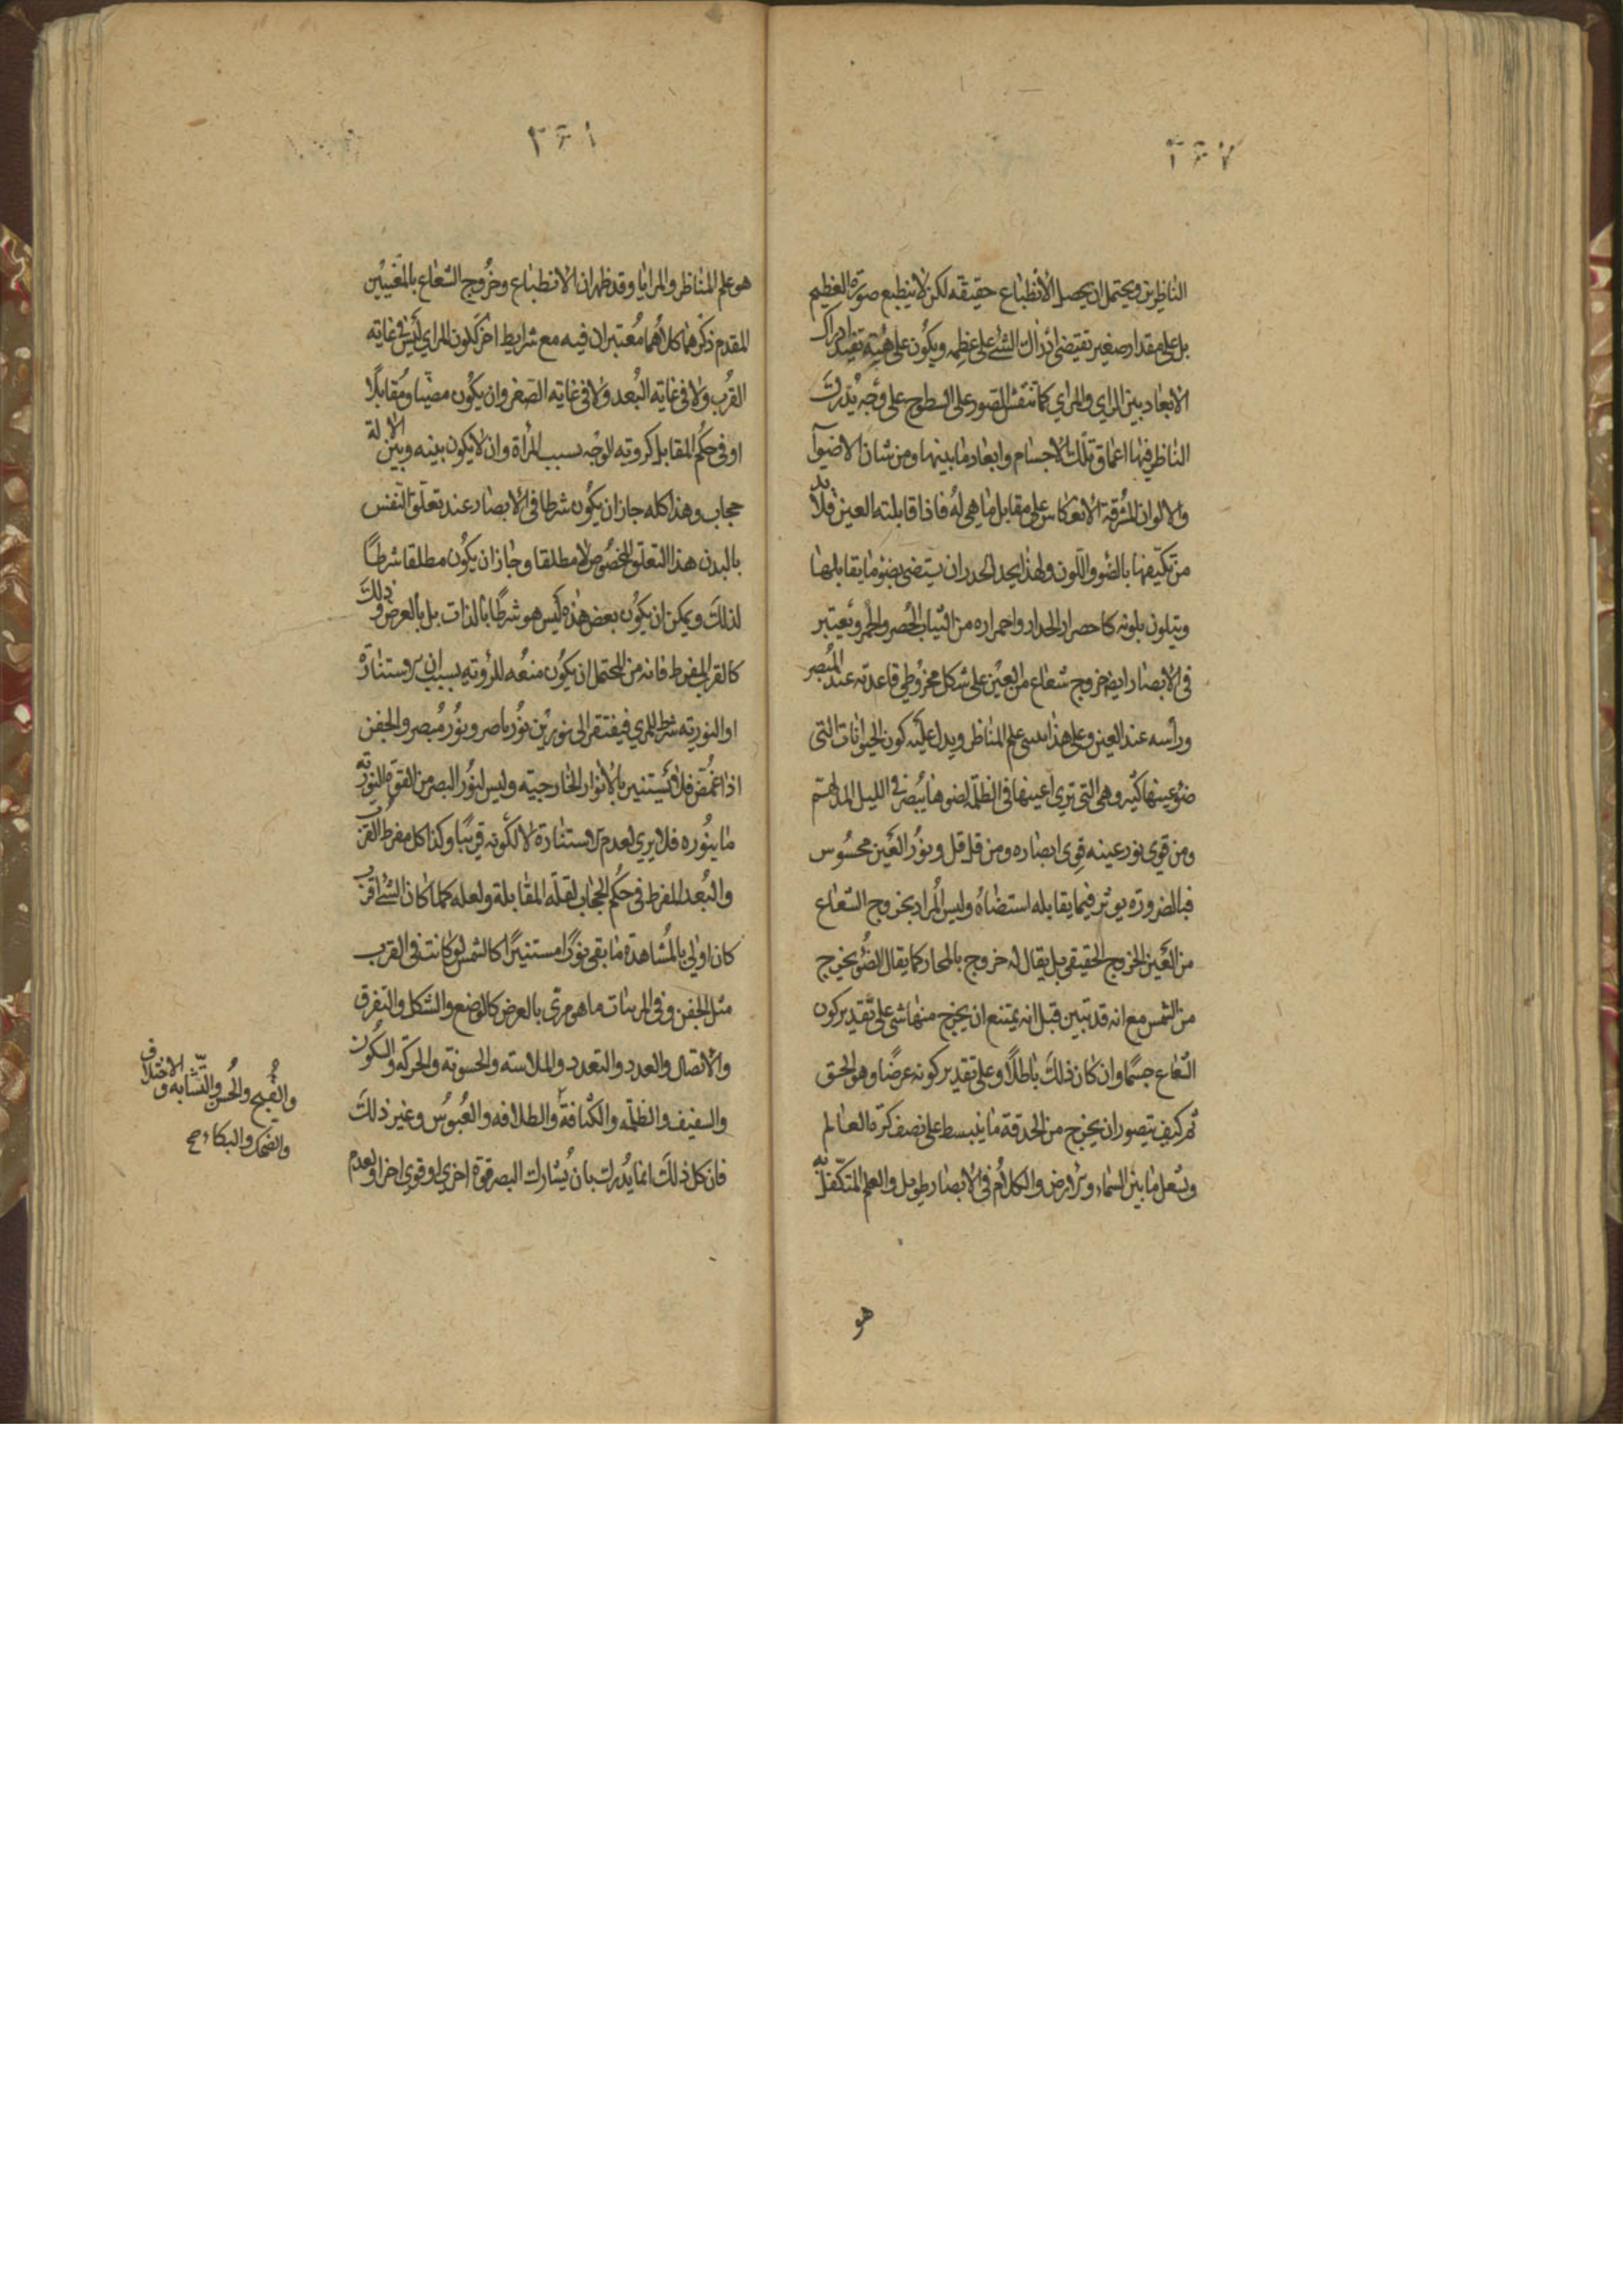 الناظرين ويحتمل ان يحصل الانطباع حقيقه لكن لا ينطبع صورة العظيم
بل على مقدار صغير تقتضى ادراك الشئ على عظمه ويكون على هيئة تفيد ادراك
الابعاد بين الراي والمراي كما تنقش الصور على السطوح على وجه يدرك
الناظر فيها اعماق تلك الاجسام وابعاد ما بينها ومن شان الاضوآ
والالوان المشرقة الانعكاس على مقابل ما هى له فاذا قابلته العين فلا بد
من تكيفها بالضو واللون ولهذا يجد الجدران يستضى بضو ما يقابلها
ويتلون بلونه كاحضرار الجدار واحمراره من الثياب الخضر والحمر ويعتبر
فى الابصار ايضا خروج شعاع من العين على شكل مخروطى قاعدته عند المبصر
ورأسه عند العين وعلى هذا مبنى علم المناظر ويدل عليه كون الحيوانات التى
ضوء عينها كثير وهى التى ترى اعينها فى الظلمة لضوها يبصر فى الليل المدلهم
ومن قوى نور عينه قوى ابصاره ومن قل قل ونور العين محسوس
فبالضرورة يوثر فيما يقابله استضاة وليس المراد بخروج الشعاع
من العين الخروج الحقيقى بل يقال له خروج بالمجاز كما يقال الضوء يخرج
من الشمس مع انه قد تبين قبل انه يمتنع ان يخرج منها شى على تقدير كون
الشعاع جسما وان كان ذلك باطلا وعلى تقدير كونه عرضا وهو الحق
ثم كيف يتصور ان يخرج من الحدقة ما ينبسط على نصف كرة العالم
ويشغل ما بين السماء والارض والكلام فى الابصار طويل والعلم المتكفل به
هو
هو علم المناظر والمرايا وقد ظهر ان الانطباع وخروج الشعاع بالمعنيين
المقدم ذكرهما كلاهما معتبران فيه مع شرايط اخر ككون المراي ليس فى غاية
القرب ولا فى غاية البعد ولا فى غاية الصغر وان يكون مضيئا ومقابلا
او فى حكم المقابل كروية الوجه بسبب المرآة وان لا يكون بينه وبين الالة
حجاب وهذا كله جاز ان يكون شرطا فى الابصار عند تعلق النفس
بالبدن هذا التعلق المخصوص لا مطلقا وجاز ان يكون مطلقا شرطا
لذلك ويمكن ان يكون بعض هذه ليس هو شرطا بالذات بل بالعرض وذلك
كالقرب المفرط فانه من المحتمل ان يكون منعه للرؤية بسبب ان الاستنارة
او النورية شرط للمري فيفتقر الى نورين نور باصر ونور مبصر والجفن
اذا غمض فلا يستنير بالانوار الخارجية وليس لنور البصر من القوة النورية
ما ينوره فلا يري لعدم الاستنارة لا لكونه قريبا وكذا كل مفرط القرب
والبعد المفرط فى حكم الحجاب لقلة المقابلة ولعله كلما كان الشئ اقرب
كان اولى بالمشاهدة ما بقى نورا مستنيرا كالشمس لو كانت فى القرب
مثل الجفن وفى المرئيات ما هو مرئى بالعرض كالوضع والشكل والتفرق
والاتصال والعدد والتعدد والملاسة والخشونة والحركة والسكون
والشفيف والظلمة والكثافة والطلاقة والعبوس وغير ذلك
فان كل ذلك انما يدرك بان يشارك البصر قوة اخرى او قوى اخرا ولعدم
والقبح والحسن والتشابه والاختلاف
والضحك والبكاء صح